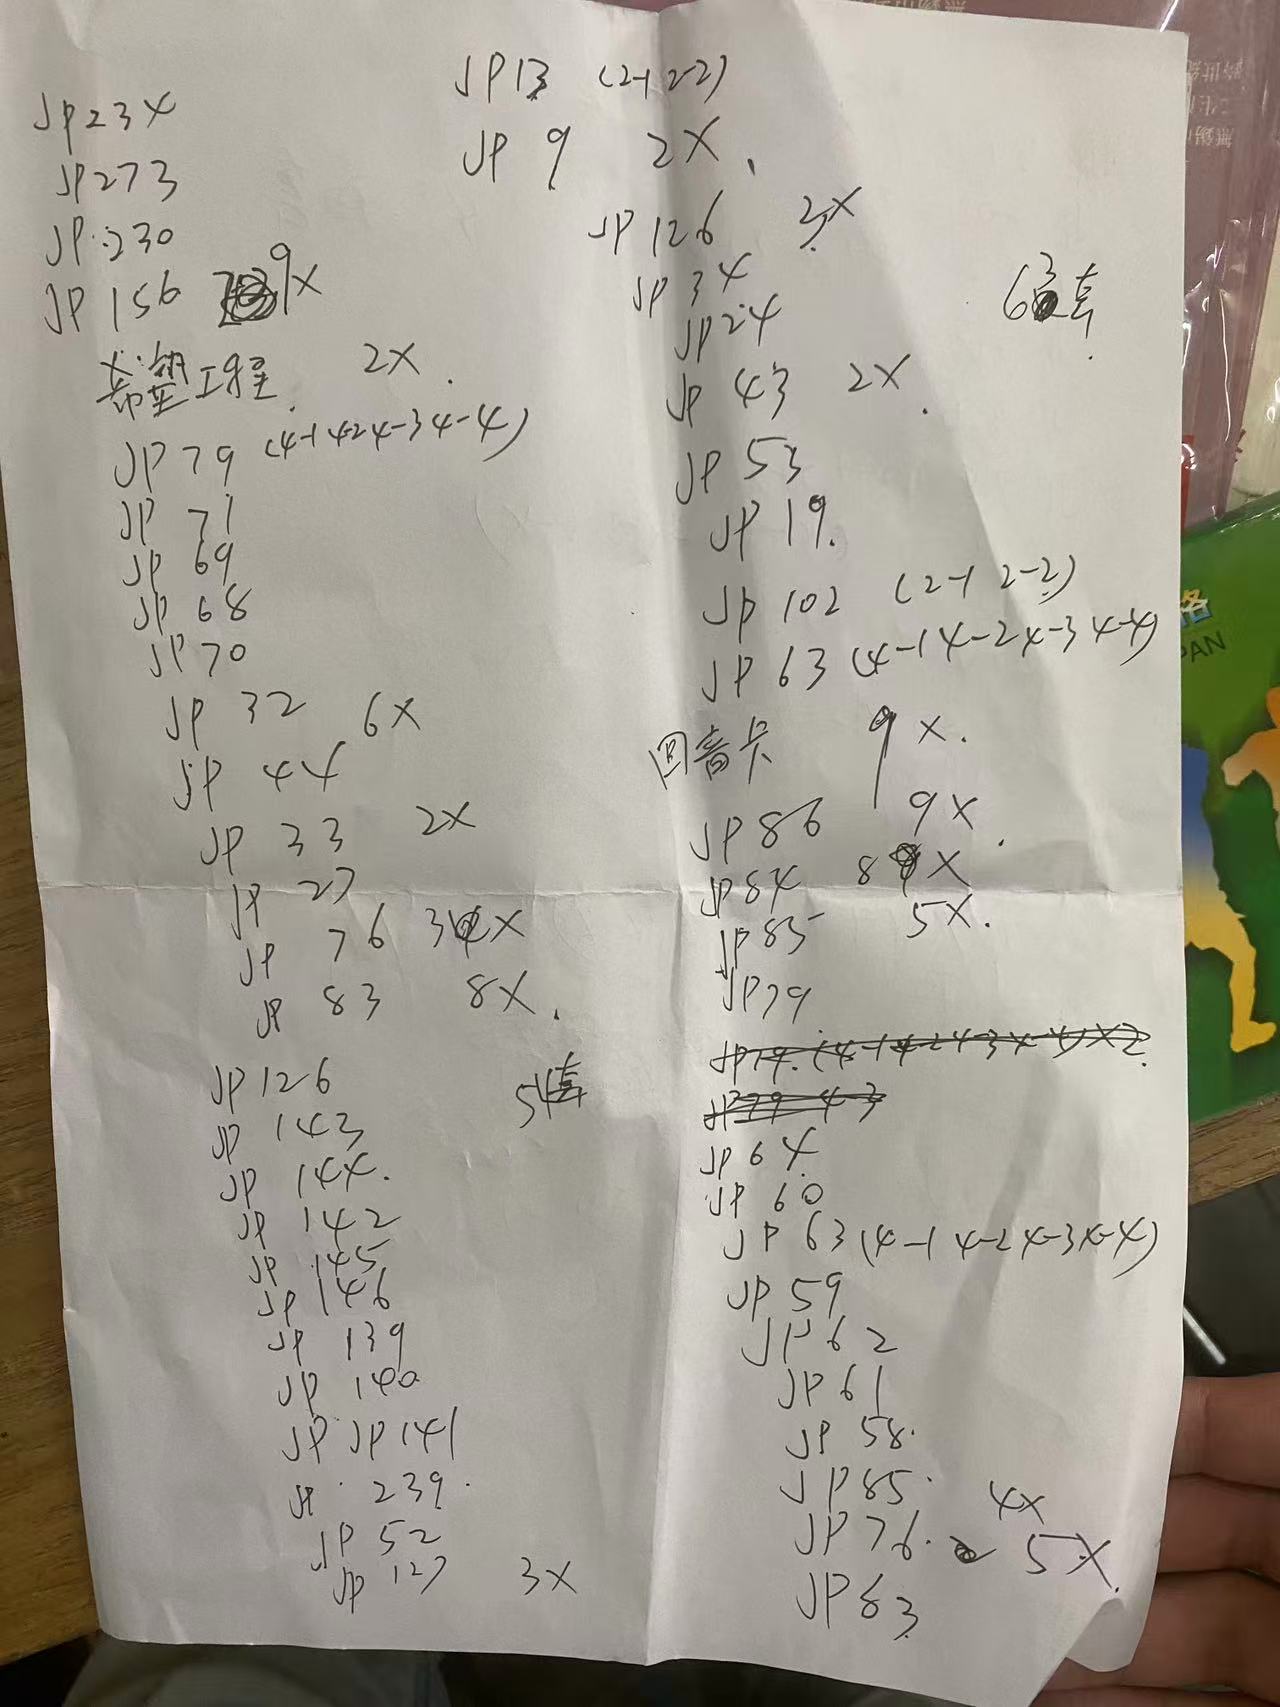 JP234
JP273
JP230
JP156 9X
希望工程 2X.
JP79 (4-1 4-2 4-3 4-4)
JP 71
JP 69
JP 68
JP 70
JP 32 6X
JP 44
JP 33 2X
JP 27
JP 76 3X
JP 83 8X.
JP 126 54套
JP 143
JP 144.
JP 142
JP 145
JP 146
JP 139
JP 140
JP JP141
JP 239.
JP 52
JP 127 3X
JP13 (2-1 2-2)
JP 9 2X.
JP 126 2X
JP 34
63套.
JP24
JP 43 2X.
JP 53
JP 19.
JP 102 (2-1 2-2)
JP 63 (4-1 4-2 4-3 4-4)
回音卡 9X.
JP 86 9X.
JP84 8X
JP85 5X.
JP79
JP79. (4-1 4-2 4-3 4-4) X2
JP79 4-3
JP 64.
JP 60
JP 63 (4-1 4-2 4-3 4-4)
JP 59
JP 62
JP 61
JP 58.
JP85. 4X
JP76. 5X.
JP83
PAN